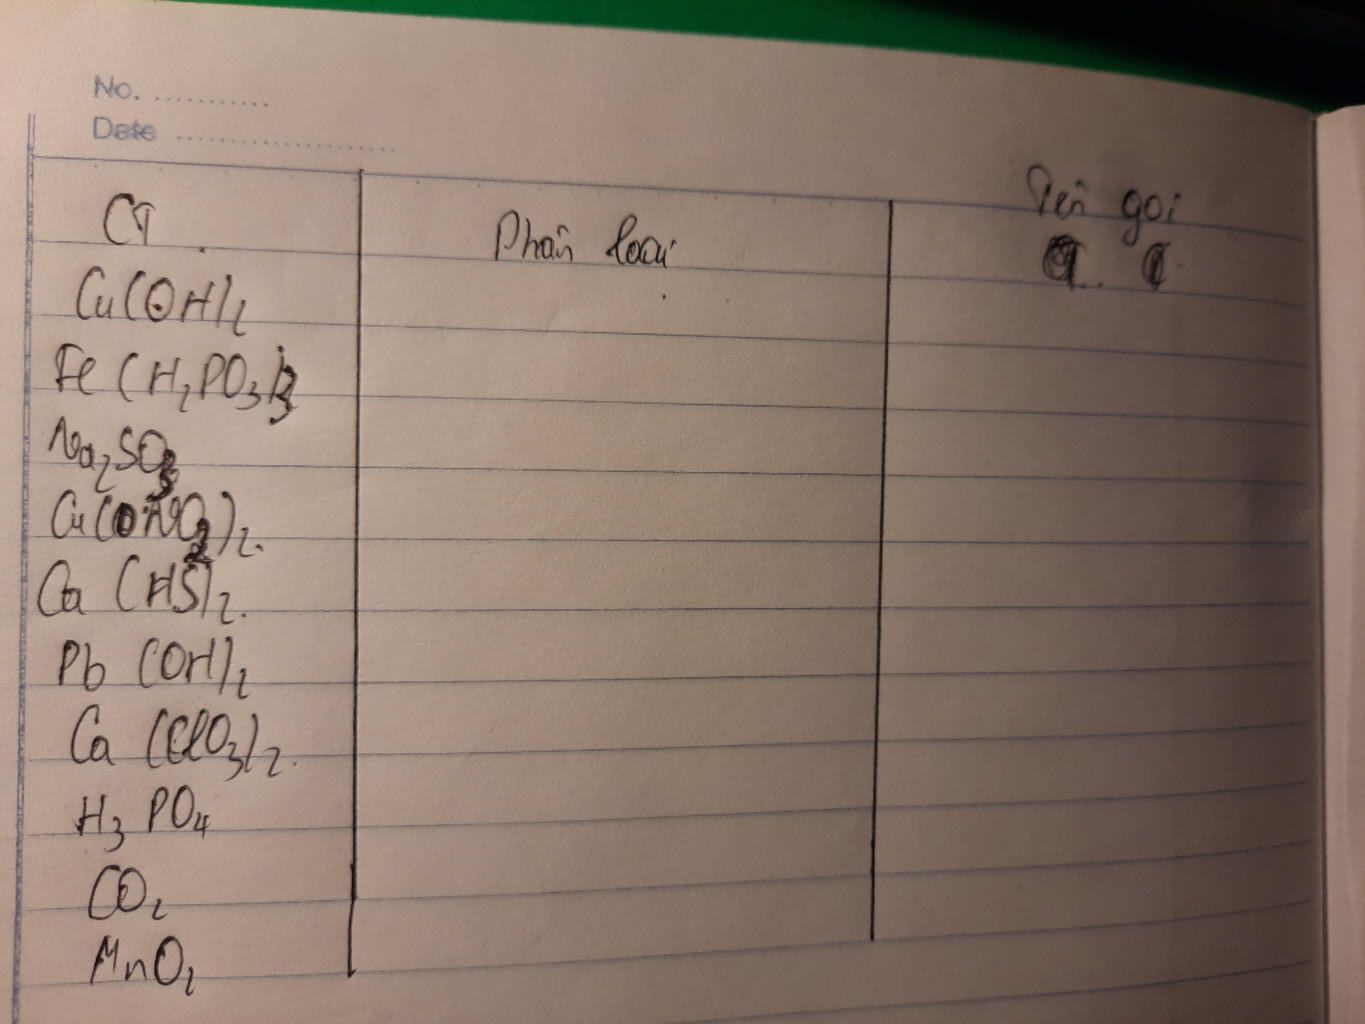 No. ...........
Date ....................
CT Phân loại Tên gọi
Cu(OH)₂
Fe(H₂PO₃)₃
Na₂SO₃
Cu(NO₂)₂.
Ca(HS)₂.
Pb(OH)₂
Ca(ClO₃)₂.
H₃PO₄
CO₂
MnO₂